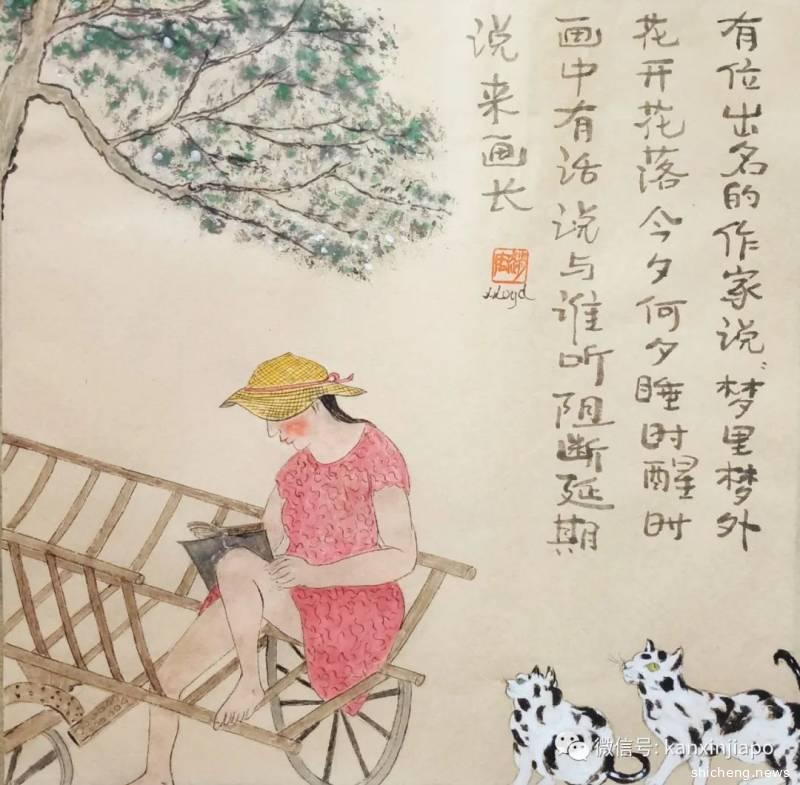 有位出名的作家说“梦里梦外
花开花落今夕何夕睡时醒时
画中有话说与谁听阻断延期
说来画长
Lloyd
微信号: kanxinjiapo
shicheng.news